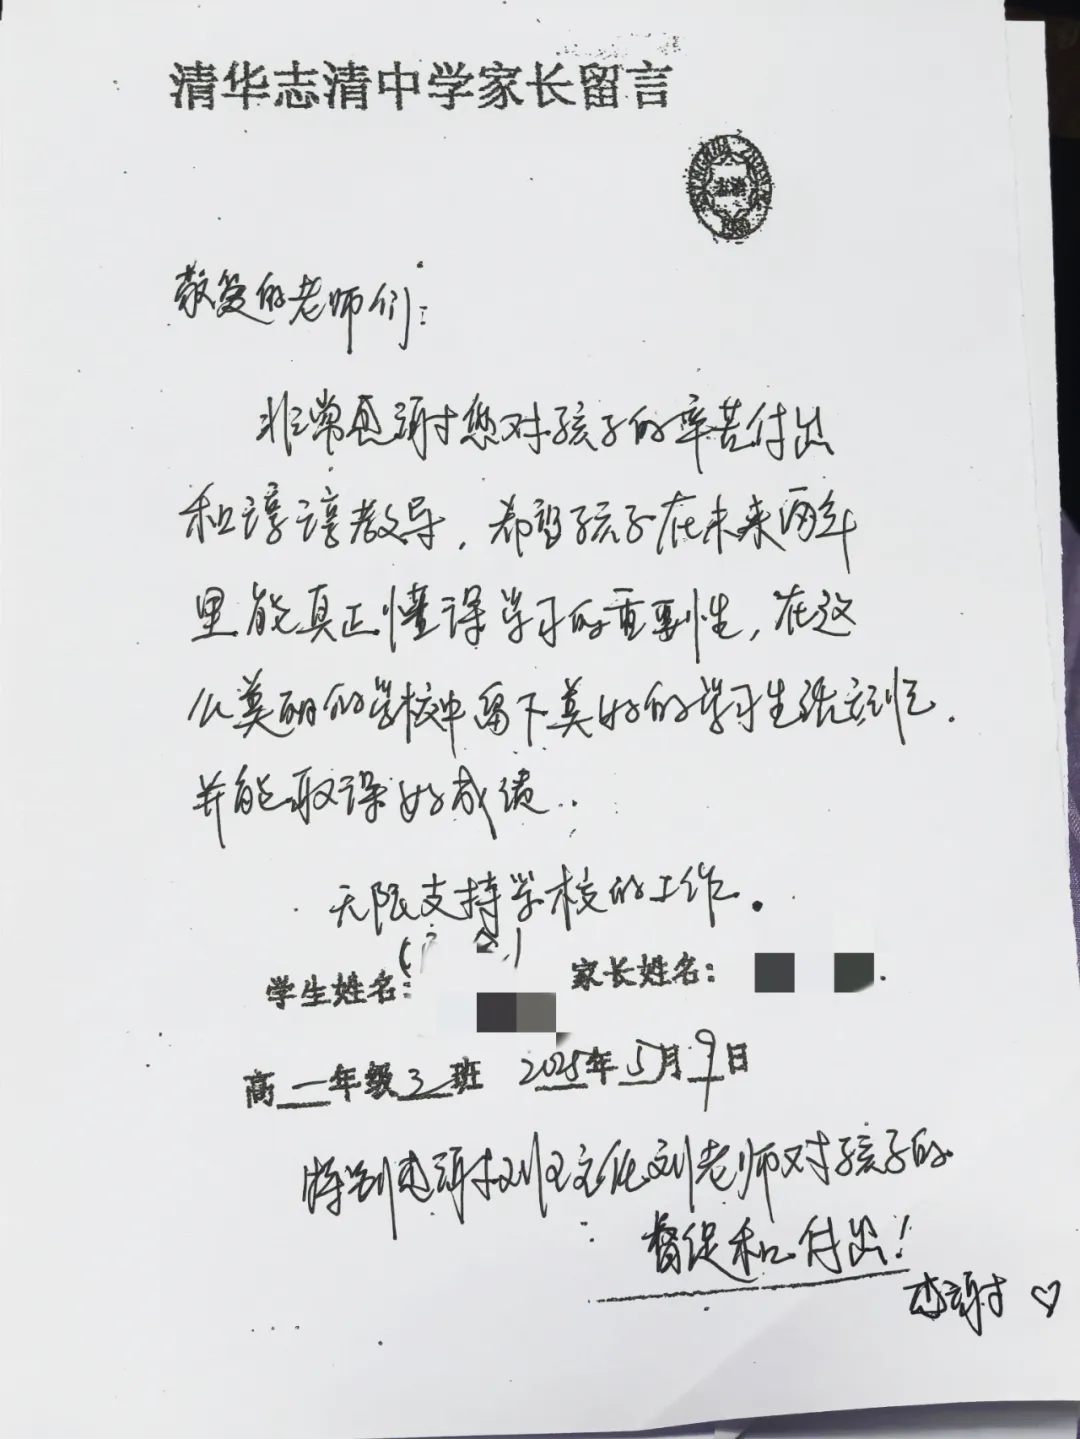 清华志清中学家长留言
志清
敬爱的老师们：
非常感谢您对孩子的辛苦付出
和谆谆教导，希望孩子在未来两年
里能真正懂得学习的重要性，在这
么美丽的学校中留下美好的学习生活记忆.
并能取得好成绩..
无限支持学校的工作.
学生姓名： 家长姓名：
高一年级3班 2025年5月9日
特别感谢班主任刘老师对孩子的
督促和付出！
感谢♡